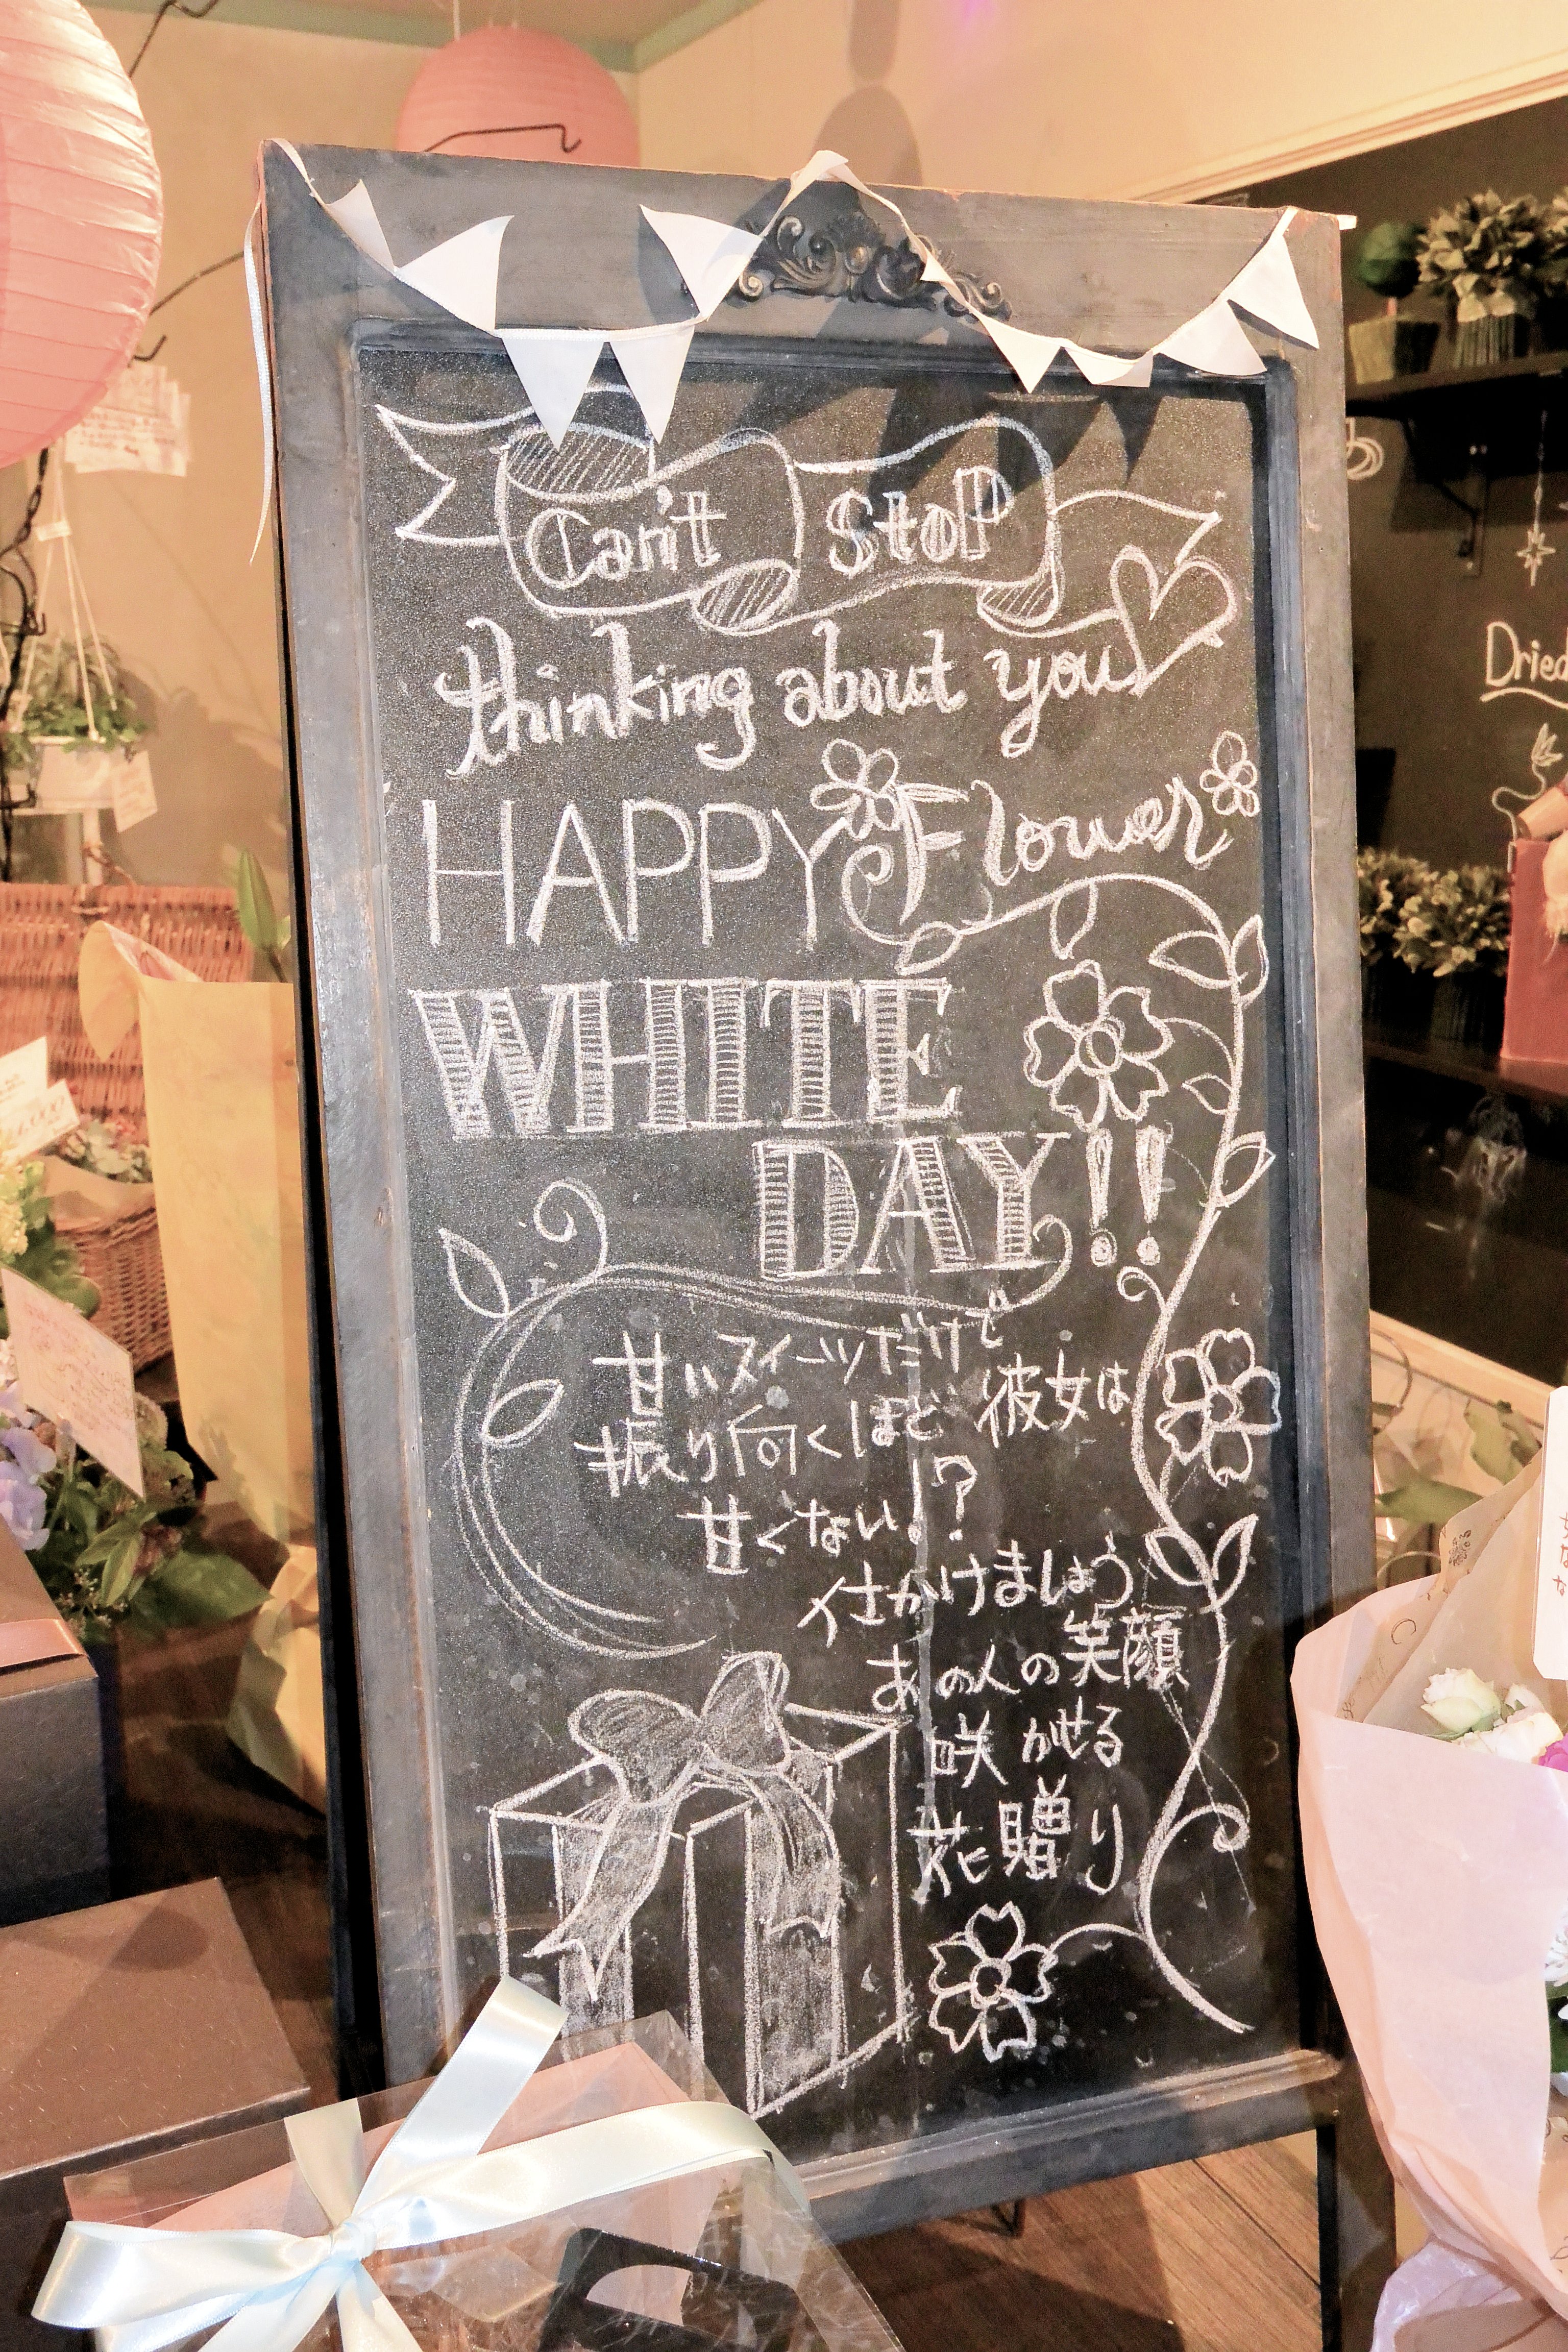 Can't Stop
thinking about you
HAPPY Flower
WHITE
DAY!!
甘いスイーツだけで
振り向くほど 彼女は
甘くない!?
仕かけましょう
あの人の笑顔
咲かせる
花贈り
Dried